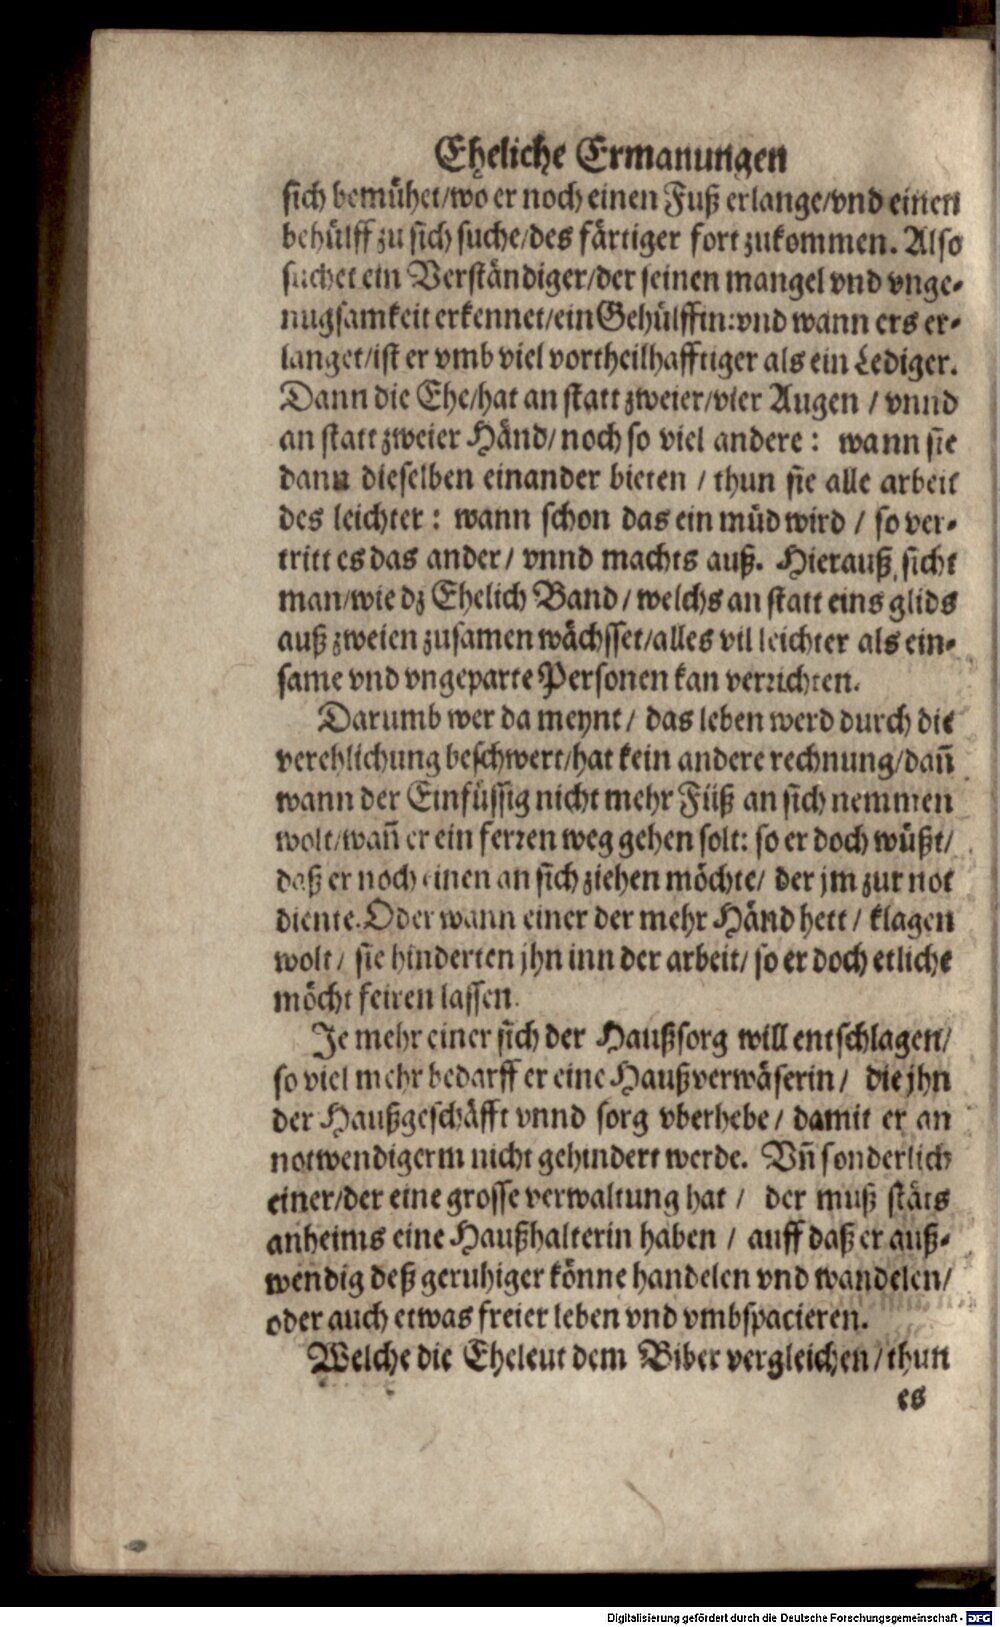 Eheliche Ermanungen
sich bemühet/wo er noch einen Fuß erlange/vnd einen
behülff zu sich suche/des färtiger fort zukommen. Also
suchet ein Verständiger/der seinen mangel vnd vnge-
nugsamkeit erkennet/ein Gehülffin: vnd wann ers er-
langet/ist er vmb viel vortheilhafftiger als ein Lediger.
Dann die Ehe/hat an statt zweier/vier Augen / vnnd
an statt zweier Händ/ noch so viel andere: wann sie
dann dieselben einander bieten / thun sie alle arbeit
des leichter: wann schon das ein müd wird / so ver-
tritt es das ander/ vnnd machts auß. Hierauß sicht
man/wie dz Ehelich Band/ welchs an statt eins glids
auß zweien zusamen wächsset/alles vil leichter als ein-
same vnd vngeparte Personen kan verrichten.
Darumb wer da meynt/ das leben werd durch die
verehlichung beschwert/hat kein andere rechnung/dañ
wann der Einfüssig nicht mehr Füß an sich nemmen
wolt/wañ er ein ferren weg gehen solt: so er doch wüßt/
daß er noch einen an sich ziehen möchte/ der jm zur not
diente. Oder wann einer der mehr Händ hett/ klagen
wolt/ sie hinderten jhn inn der arbeit/ so er doch etliche
möcht feiren lassen.
Je mehr einer sich der Haußsorg will entschlagen/
so viel mehr bedarff er eine Haußverwäserin/ die jhn
der Haußgeschäfft vnnd sorg vberhebe/ damit er an
notwendigerm nicht gehindert werde. Vñ sonderlich
einer/der eine grosse verwaltung hat / der muß stäts
anheims eine Haußhalterin haben / auff daß er auß-
wendig deß geruhiger könne handelen vnd wandelen/
oder auch etwas freier leben vnd vmbspacieren.
Welche die Eheleut dem Biber vergleichen/thun
es
Digitalisierung gefördert durch die Deutsche Forschungsgemeinschaft - DFG